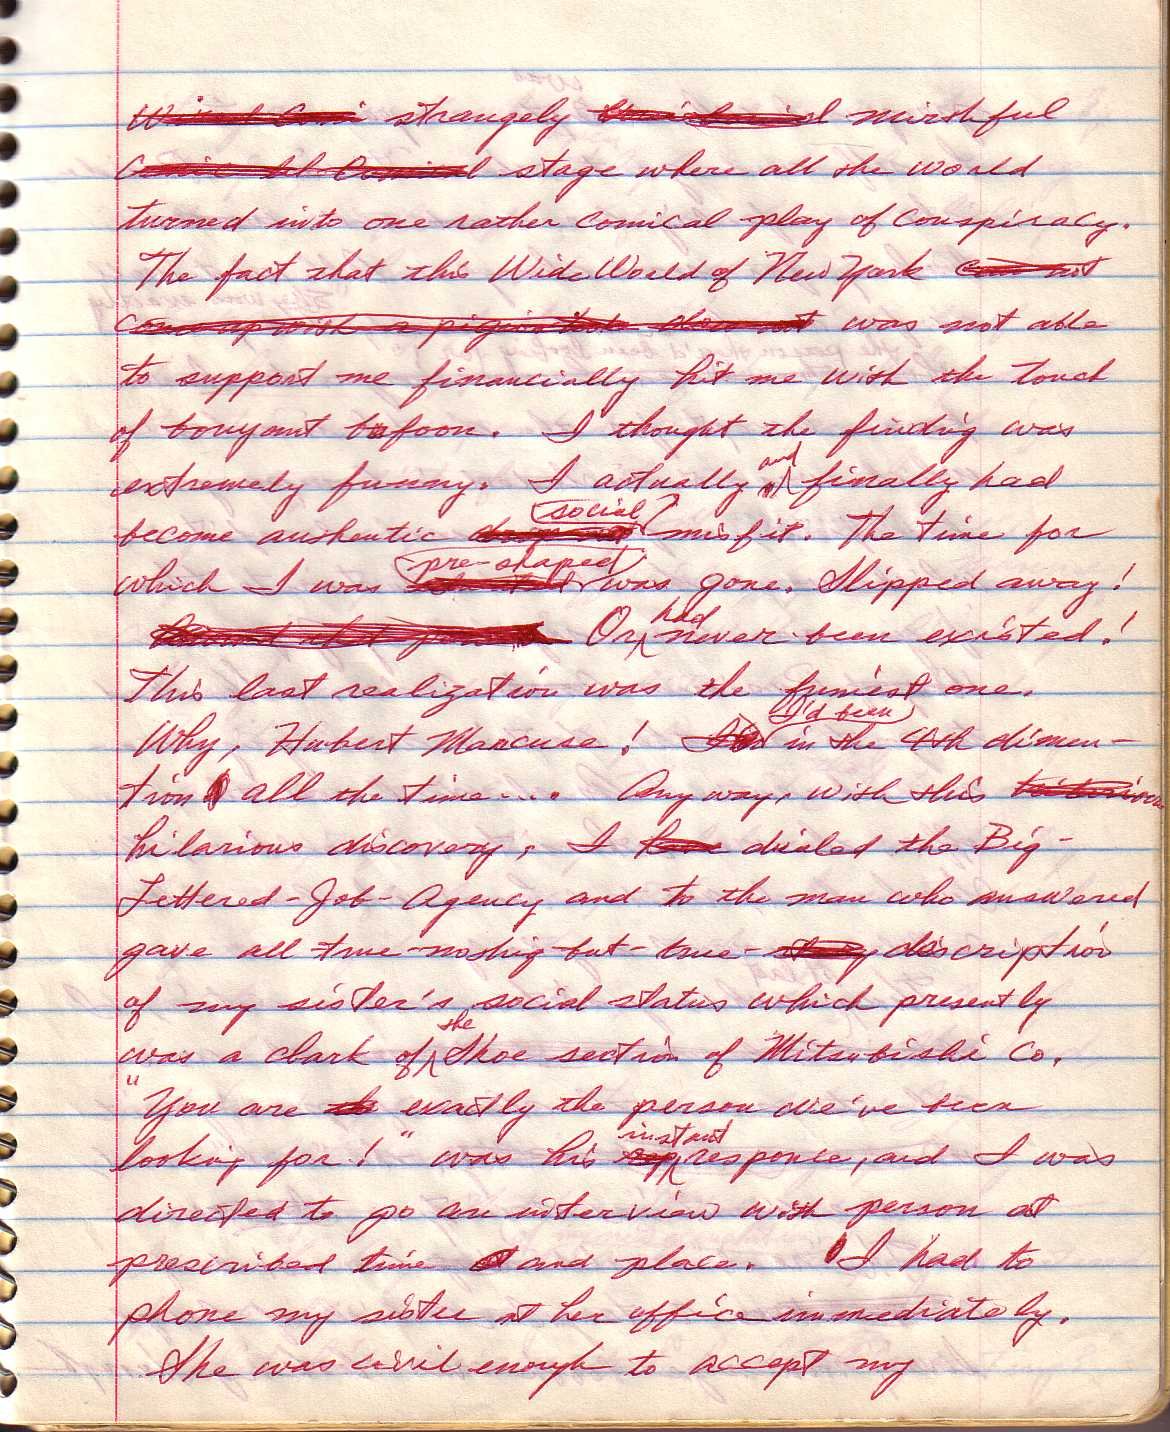 strangely mirthful
stage where all the world
turned into one rather comical play of conspiracy.
The fact that this Wide World of New York
was not able
to support me financially hit me with the touch
of bouyant bufoon. I thought the finding was
extremely funny. I actually and finally had
become authentic social misfit. The time for
which I was pre-shaped was gone. Slipped away!
Or had never been existed!
This last realization was the funniest one.
Why, Hubert Marcuse! I'd been in the 4th dimen-
tion all the time.... Any way, with this
hilarious discovery, I dialed the Big-
Lettered-Job-Agency and to the man who answered
gave all true-nothig-but-true- description
of my sister's social status which presently
was a clark of the Shoe section of Mitsubishi Co.
"You are exactly the person we've been
looking for!" was his instant responce, and I was
directed to go an interview with person at
prescribed time and place. I had to
phone my sister at her office immediately.
She was civil enough to accept my